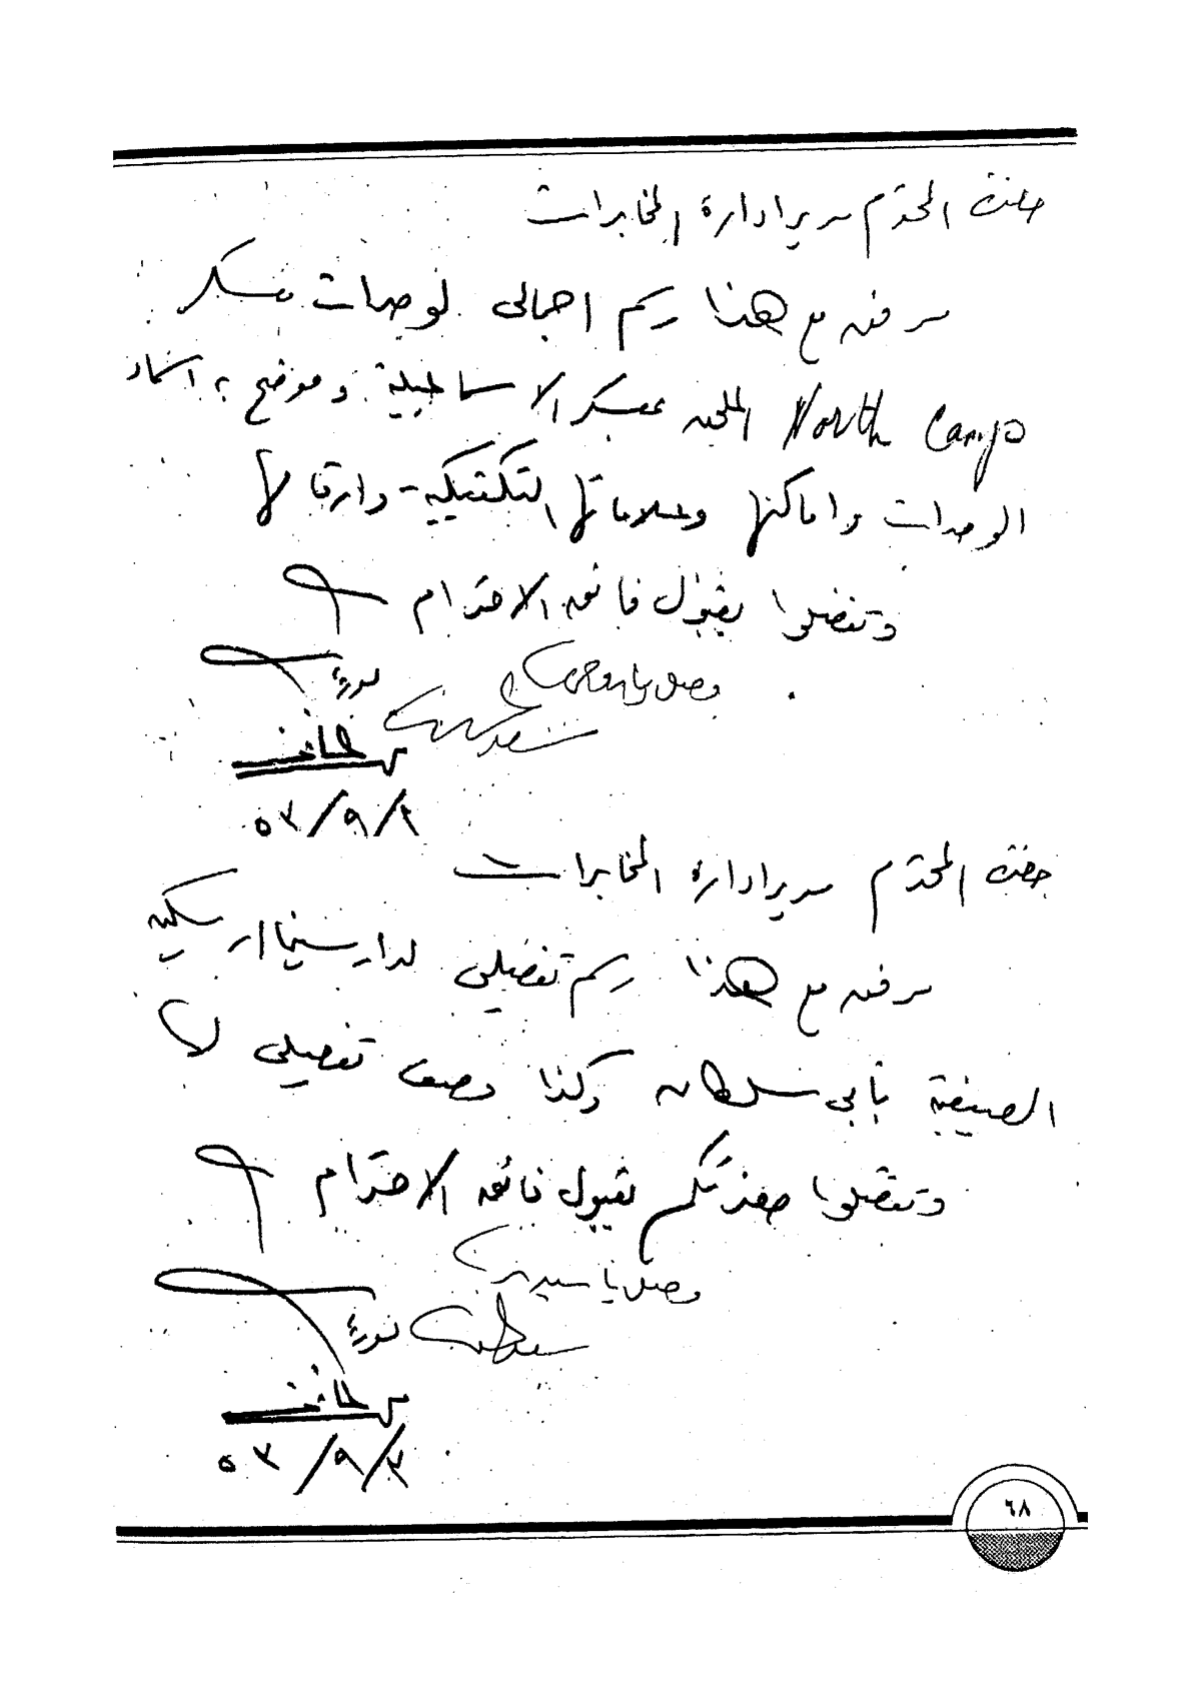 حضرة المحترم مدير ادارة المخابرات
مرفق مع هذا رسم اجمالى لوحدات معسكر
North Camp الملحق بمعسكر الاسماعيلية وموضح به اسماء
الوحدات واماكنها وعلاماتها التكتيكية وارقامها
وتفضلوا بقبول فائق الاحترام
وصل
٥٣/٩/٢
حضرة المحترم مدير ادارة المخابرات
مرفق مع هذا رسم تفصيلى لدار سينما
الصيفية بأبى سلطان وكذا وصف تفصيلى لها
وتفضلوا حضرتكم بقبول فائق الاحترام
وصل
٥٣/٩/٣
٦٨